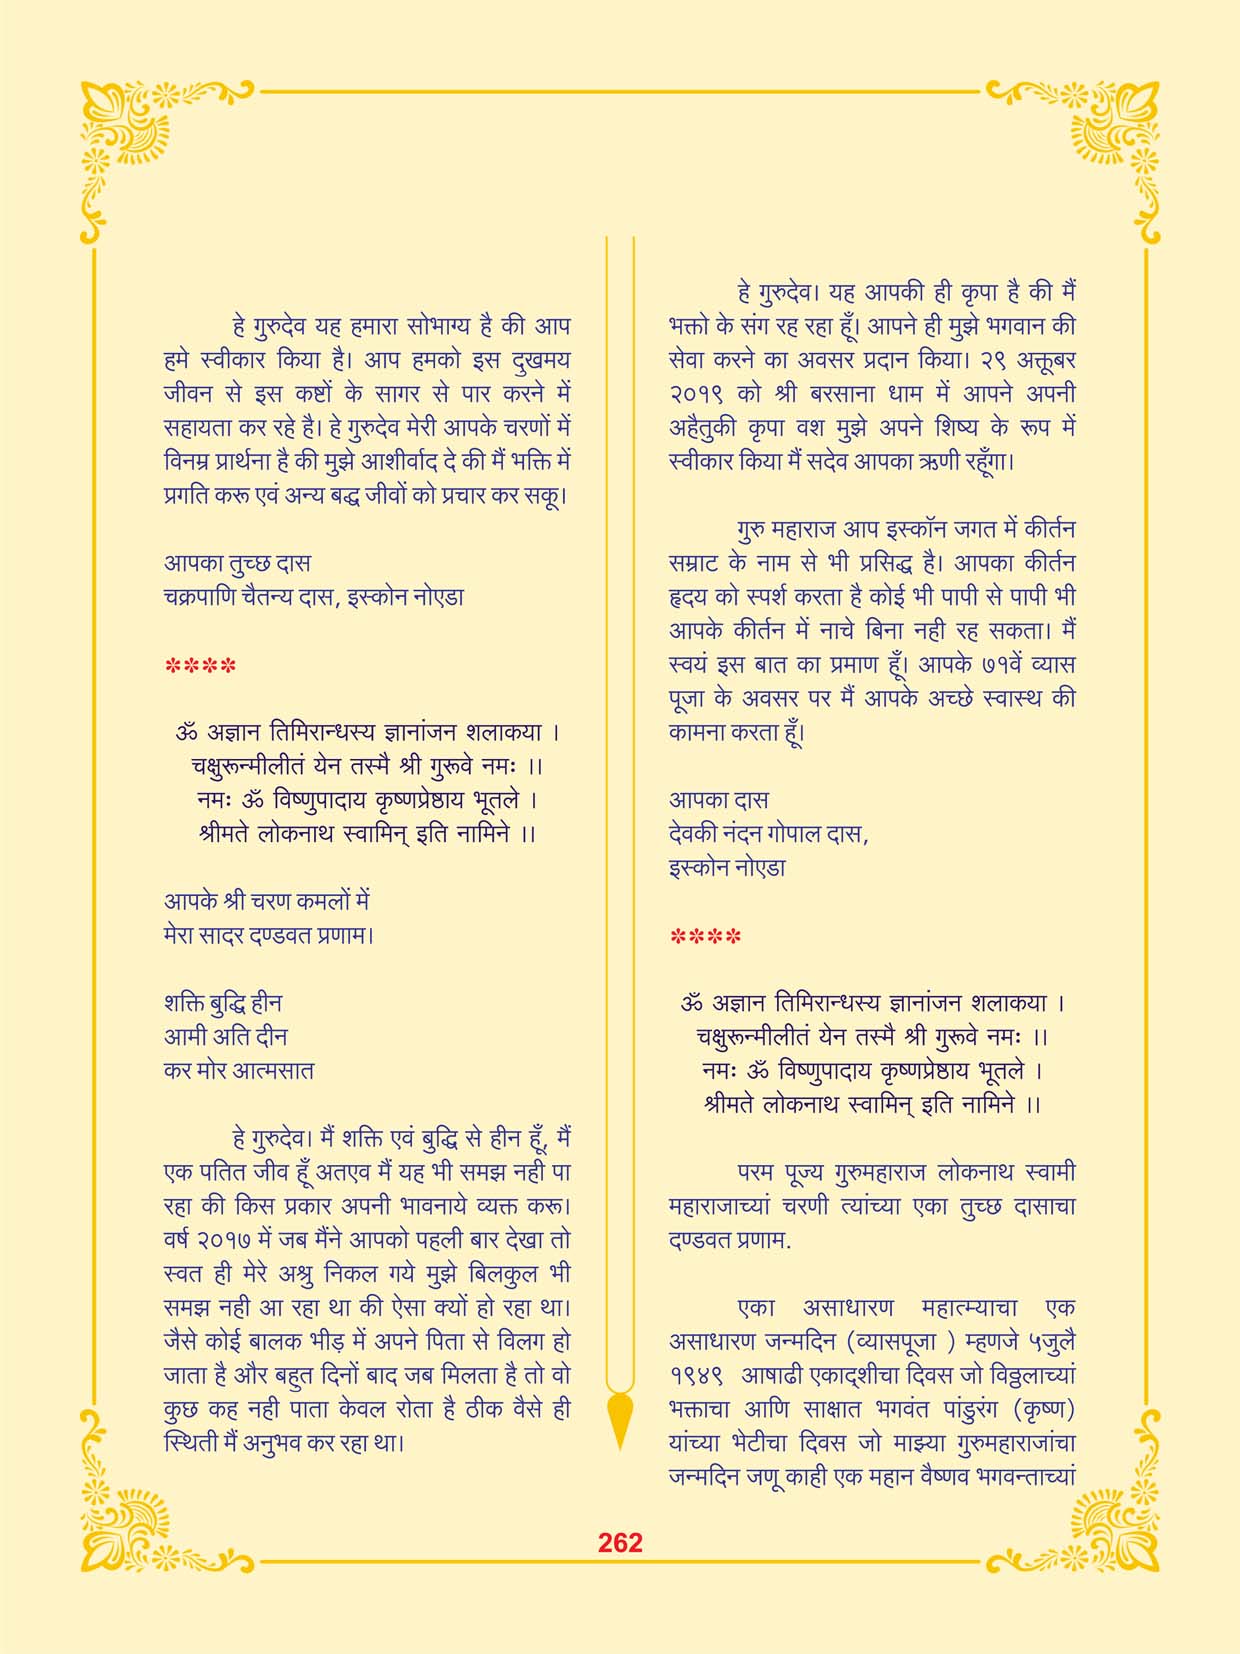 हे गुरुदेव यह हमारा सोभाग्य है की आप
हमे स्वीकार किया है। आप हमको इस दुखमय
जीवन से इस कष्टों के सागर से पार करने में
सहायता कर रहे है। हे गुरुदेव मेरी आपके चरणों में
विनम्र प्रार्थना है की मुझे आशीर्वाद दे की मैं भक्ति में
प्रगति करू एवं अन्य बद्ध जीवों को प्रचार कर सकू।
आपका तुच्छ दास
चक्रपाणि चैतन्य दास, इस्कोन नोएडा
****
ॐ अज्ञान तिमिरान्धस्य ज्ञानांजन शलाकया ।
चक्षुरून्मीलीतं येन तस्मै श्री गुरूवे नमः ।।
नमः ॐ विष्णुपादाय कृष्णप्रेष्ठाय भूतले ।
श्रीमते लोकनाथ स्वामिन् इति नामिने ।।
आपके श्री चरण कमलों में
मेरा सादर दण्डवत प्रणाम।
शक्ति बुद्धि हीन
आमी अति दीन
कर मोर आत्मसात
हे गुरुदेव। मैं शक्ति एवं बुद्धि से हीन हूँ, मैं
एक पतित जीव हूँ अतएव मैं यह भी समझ नही पा
रहा की किस प्रकार अपनी भावनाये व्यक्त करू।
वर्ष २०१७ में जब मैंने आपको पहली बार देखा तो
स्वत ही मेरे अश्रु निकल गये मुझे बिलकुल भी
समझ नही आ रहा था की ऐसा क्यों हो रहा था।
जैसे कोई बालक भीड़ में अपने पिता से विलग हो
जाता है और बहुत दिनों बाद जब मिलता है तो वो
कुछ कह नही पाता केवल रोता है ठीक वैसे ही
स्थिती मैं अनुभव कर रहा था।
हे गुरुदेव। यह आपकी ही कृपा है की मैं
भक्तो के संग रह रहा हूँ। आपने ही मुझे भगवान की
सेवा करने का अवसर प्रदान किया। २९ अक्तूबर
२०१९ को श्री बरसाना धाम में आपने अपनी
अहैतुकी कृपा वश मुझे अपने शिष्य के रूप में
स्वीकार किया मैं सदेव आपका ऋणी रहूँगा।
गुरु महाराज आप इस्कॉन जगत में कीर्तन
सम्राट के नाम से भी प्रसिद्ध है। आपका कीर्तन
हृदय को स्पर्श करता है कोई भी पापी से पापी भी
आपके कीर्तन में नाचे बिना नही रह सकता। मैं
स्वयं इस बात का प्रमाण हूँ। आपके ७१वें व्यास
पूजा के अवसर पर मैं आपके अच्छे स्वास्थ की
कामना करता हूँ।
आपका दास
देवकी नंदन गोपाल दास,
इस्कोन नोएडा
****
ॐ अज्ञान तिमिरान्धस्य ज्ञानांजन शलाकया ।
चक्षुरून्मीलीतं येन तस्मै श्री गुरूवे नमः ।।
नमः ॐ विष्णुपादाय कृष्णप्रेष्ठाय भूतले ।
श्रीमते लोकनाथ स्वामिन् इति नामिने ।।
परम पूज्य गुरुमहाराज लोकनाथ स्वामी
महाराजाच्यां चरणी त्यांच्या एका तुच्छ दासाचा
दण्डवत प्रणाम.
एका असाधारण महात्म्याचा एक
असाधारण जन्मदिन (व्यासपूजा ) म्हणजे ५जुलै
१९४९ आषाढी एकाद्शीचा दिवस जो विठ्ठलाच्यां
भक्ताचा आणि साक्षात भगवंत पांडुरंग (कृष्ण)
यांच्या भेटीचा दिवस जो माझ्या गुरुमहाराजांचा
जन्मदिन जणू काही एक महान वैष्णव भगवन्ताच्यां
262